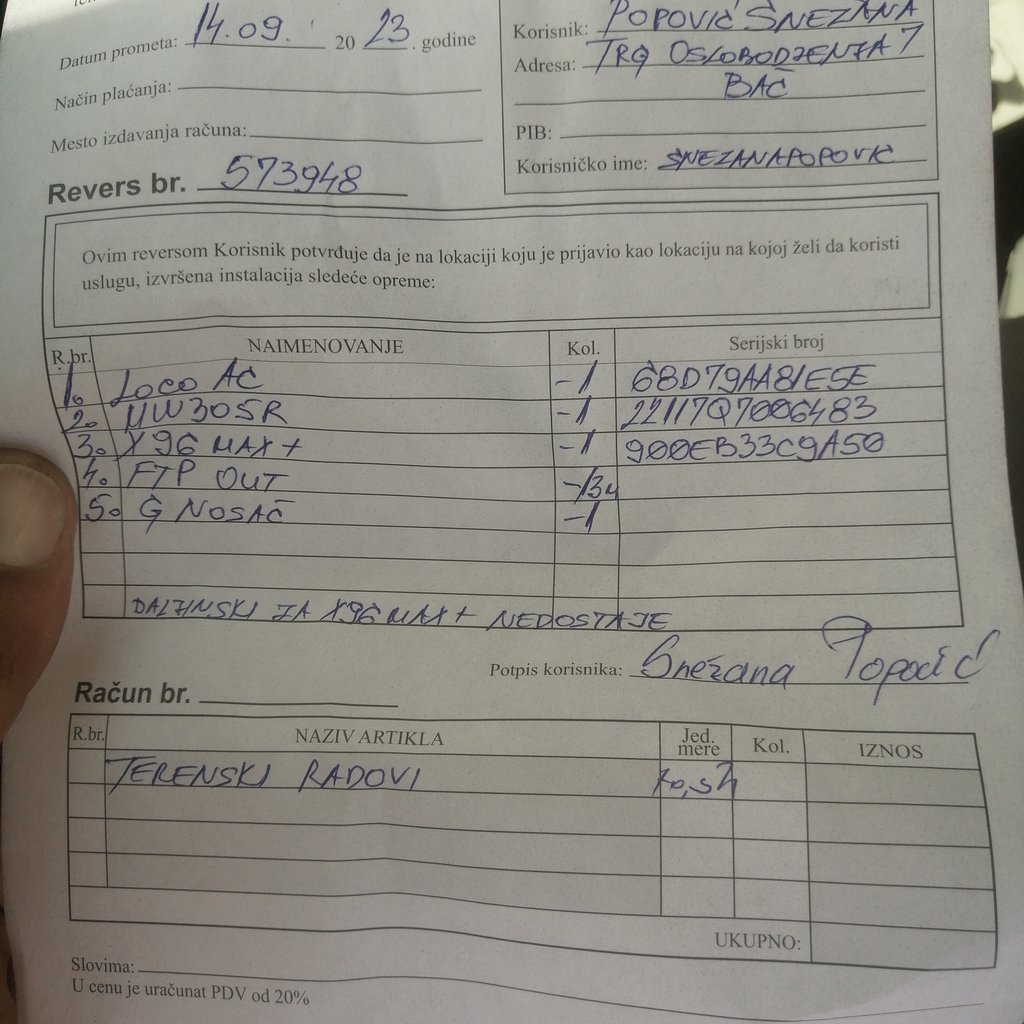 Datum prometa: 14.09. 2023. godine
Način plaćanja:
Mesto izdavanja računa:
Revers br. 573948
Korisnik: POPOVIĆ SNEZANA
Adresa: TRG OSLOBODZENJA 7
BAČ
PIB:
Korisničko ime: SNEZANAPOPOVIC
Ovim reversom Korisnik potvrđuje da je na lokaciji koju je prijavio kao lokaciju na kojoj želi da koristi
uslugu, izvršena instalacija sledeće opreme:
R.br. NAIMENOVANJE Kol. Serijski broj
1. LOCO AC -1 68D79AA81E5E
2. MW305R -1 22117Q7006483
3. X96 MAX+ -1 900EB33C9A50
4. FTP OUT -13m
5. G NOSAČ -1
DALJINSKI ZA X96 MAX+ NEDOSTAJE
Potpis korisnika: Snežana Popović
Račun br.
R.br. NAZIV ARTIKLA Jed. mere Kol. IZNOS
TERENSKI RADOVI
UKUPNO:
Slovima:
U cenu je uračunat PDV od 20%